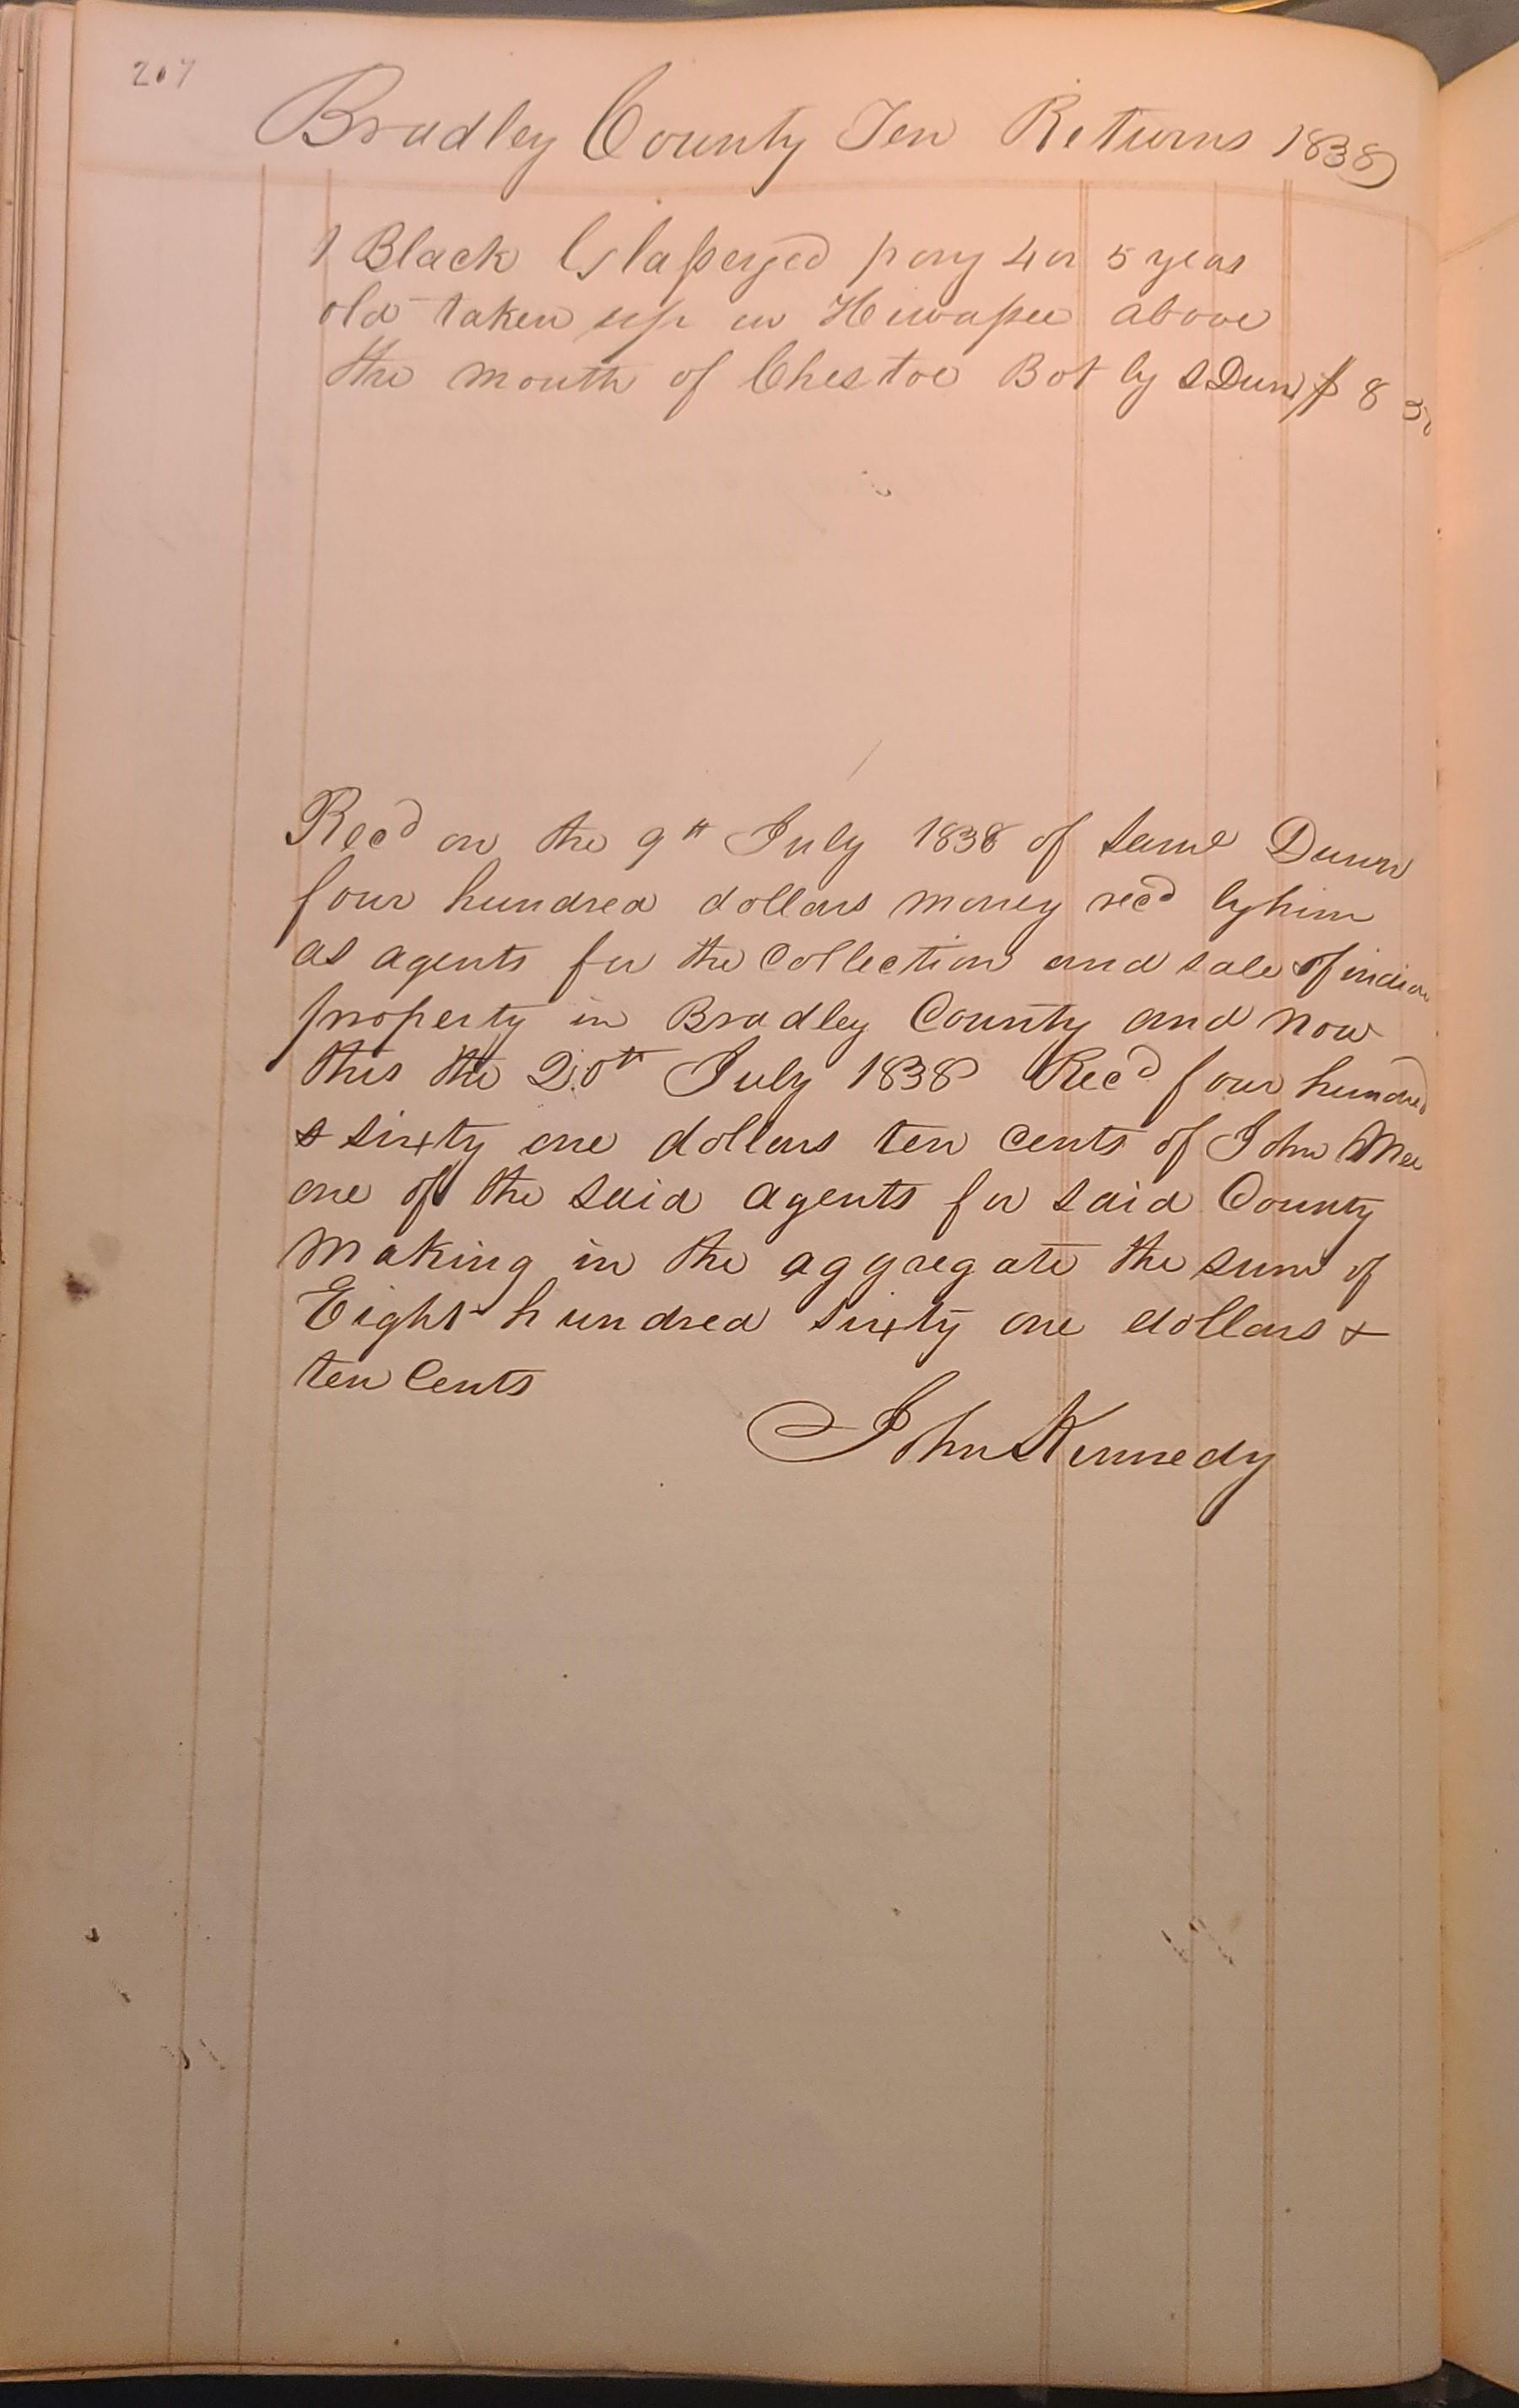 207
Bradley County Ten Returns 1838
1 Black Glass eyed pony 4 or 5 year
old taken up in Hiwassee above
the mouth of Chestoe Bot by S Dun $ 8
Recd on the 9th July 1838 of Saml Dunn
four hundred dollars money recd by him
as agents for the Collection and sale of indian
property in Bradley County and now
this the 20th July 1838 Recd four hundred
& sixty one dollars ten cents of John Mee
one of the said agents for said County
Making in the aggregate the sum of
Eight hundred sixty one dollars &
ten Cents
John Kennedy